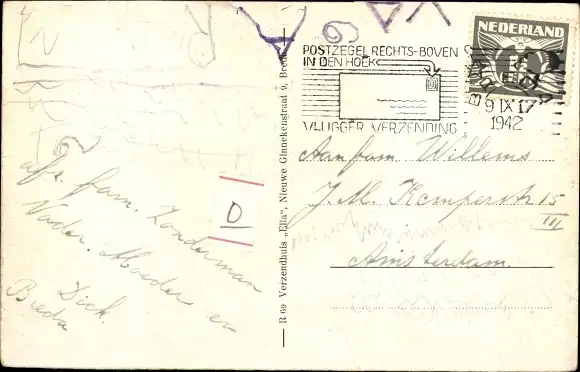 POSTZEGEL RECHTS-BOVEN
IN DEN HOEK
VLUGGER VERZENDING
NEDERLAND
BREDA
9 IX 17
1942
Aan fam Willems
J.M. Kemperstr 15
III
Amsterdam.
D
afz. fam. Zonderman
Vader. Moeder en
Dick.
Breda
R 69 Verzendhuis „Ella", Nieuwe Ginnekenstraat 9, Breda